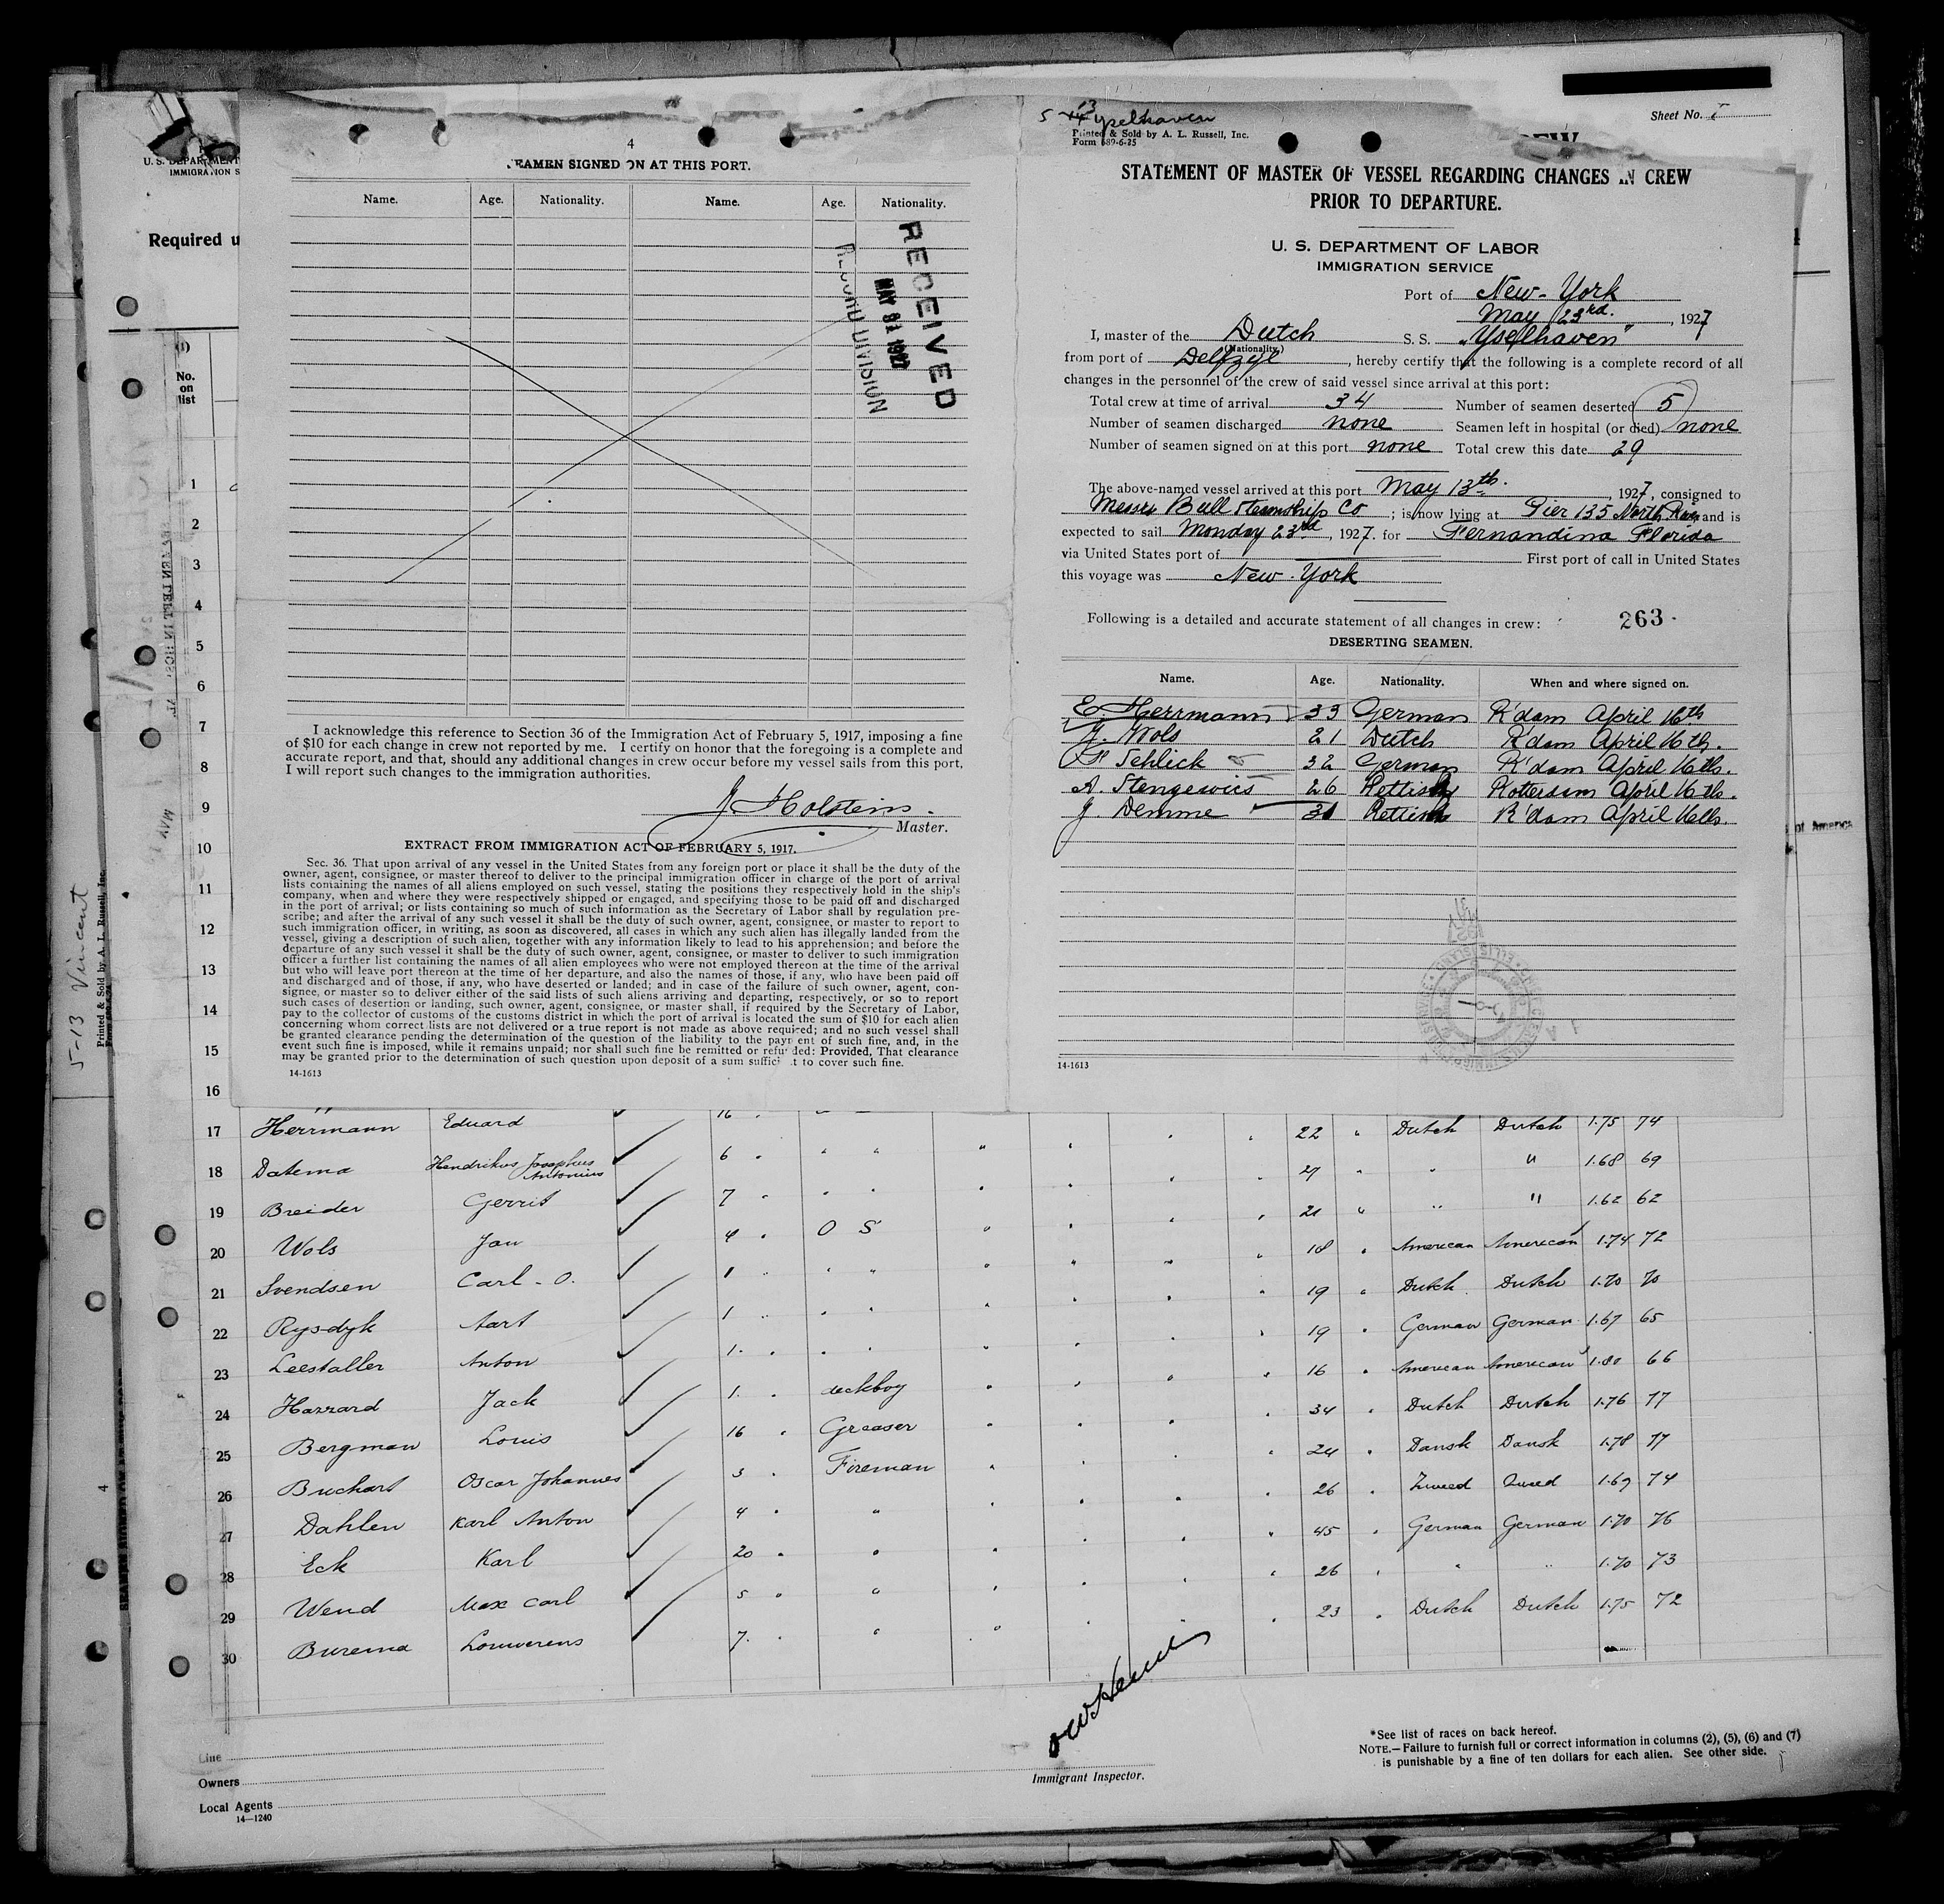 Sheet No.
U. S. DEPARTMENT
IMMIGRATION S
Required u
No.
on
list
4
SEAMEN SIGNED ON AT THIS PORT.
Name. Age. Nationality. Name. Age. Nationality.
RECEIVED
MAY 31 1927
I acknowledge this reference to Section 36 of the Immigration Act of February 5, 1917, imposing a fine
of $10 for each change in crew not reported by me. I certify on honor that the foregoing is a complete and
accurate report, and that, should any additional changes in crew occur before my vessel sails from this port,
I will report such changes to the immigration authorities.
J Holstein.
Master.
EXTRACT FROM IMMIGRATION ACT OF FEBRUARY 5, 1917.
Sec. 36. That upon arrival of any vessel in the United States from any foreign port or place it shall be the duty of the
owner, agent, consignee, or master thereof to deliver to the principal immigration officer in charge of the port of arrival
lists containing the names of all aliens employed on such vessel, stating the positions they respectively hold in the ship's
company, when and where they were respectively shipped or engaged, and specifying those to be paid off and discharged
in the port of arrival; or lists containing so much of such information as the Secretary of Labor shall by regulation pre-
scribe; and after the arrival of any such vessel it shall be the duty of such owner, agent, consignee, or master to report to
such immigration officer, in writing, as soon as discovered, all cases in which any such alien has illegally landed from the
vessel, giving a description of such alien, together with any information likely to lead to his apprehension; and before the
departure of any such vessel it shall be the duty of such owner, agent, consignee, or master to deliver to such immigration
officer a further list containing the names of all alien employees who were not employed thereon at the time of the arrival
but who will leave port thereon at the time of her departure, and also the names of those, if any, who have been paid off
and discharged and of those, if any, who have deserted or landed; and in case of the failure of such owner, agent, con-
signee, or master so to deliver either of the said lists of such aliens arriving and departing, respectively, or so to report
such cases of desertion or landing, such owner, agent, consignee, or master shall, if required by the Secretary of Labor,
pay to the collector of customs of the customs district in which the port of arrival is located the sum of $10 for each alien
concerning whom correct lists are not delivered or a true report is not made as above required; and no such vessel shall
be granted clearance pending the determination of the question of the liability to the payment of such fine, and, in the
event such fine is imposed, while it remains unpaid; nor shall such fine be remitted or refunded: Provided, That clearance
may be granted prior to the determination of such question upon deposit of a sum sufficient to cover such fine.
14-1613
5 13 Yselhaven
Printed & Sold by A. L. Russell, Inc.
Form 689-6-25
STATEMENT OF MASTER OF VESSEL REGARDING CHANGES IN CREW
PRIOR TO DEPARTURE.
U. S. DEPARTMENT OF LABOR
IMMIGRATION SERVICE
Port of New-York
May 23rd. , 1927
I, master of the Dutch S. S. "Yselhaven"
(Nationality.)
from port of Delfzyl , hereby certify that the following is a complete record of all
changes in the personnel of the crew of said vessel since arrival at this port:
Total crew at time of arrival 34 Number of seamen deserted 5
Number of seamen discharged none Seamen left in hospital (or died) none
Number of seamen signed on at this port none Total crew this date 29
The above-named vessel arrived at this port May 13th. , 1927, consigned to
Messrs Bull Steamship Co ; is now lying at Pier 135 North River and is
expected to sail Monday 23rd , 1927. for Fernandina Florida
via United States port of First port of call in United States
this voyage was New-York
Following is a detailed and accurate statement of all changes in crew: 263
DESERTING SEAMEN.
Name. Age. Nationality. When and where signed on.
E Herrmann 33 German R'dam April 16th
J. Wols 21 Dutch R'dam April 16th.
F Schlick 32 German R'dam April 16th.
A. Stengewics 26 Lettish Rotterdam April 16th.
J. Demme 31 Lettish R'dam April 16th.
14-1613
of America
5-13 Vincent
Printed & Sold by A. L. Russell, Inc.
1
2
3
4
5
6
7
8
9
10
11
12
13
14
15
16
17 Herrmann Eduard 16 22 Dutch Dutch 1.75 74
18 Datema Hendrikus Josephus Antonius 6 21 " " 1.68 69
19 Breider Gerrit 7 21 " " 1.62 62
20 Wols Jan 4 O S 18 American American 1.74 72
21 Svendsen Carl-O. 1 19 Dutch Dutch 1.70 70
22 Rysdyk Aart 1 19 German German 1.67 65
23 Leestaller Anton 1 16 American American 1.80 66
24 Hazzard Jack 1 deckboy 34 Dutch Dutch 1.76 77
25 Bergman Louis 16 Greaser 24 Dansk Dansk 1.78 77
26 Buchart Oscar Johannes 3 Fireman 26 Zweed Zweed 1.69 74
27 Dahlen Karl Anton 4 " 45 German German 1.70 76
28 Eck Karl 20 " 26 " " 1.70 73
29 Wend Max Carl 5 " 23 Dutch Dutch 1.75 72
30 Burema Louwerens 7 "
Line
Owners
Local Agents
14—1240
Immigrant Inspector.
*See list of races on back hereof.
NOTE.—Failure to furnish full or correct information in columns (2), (5), (6) and (7)
is punishable by a fine of ten dollars for each alien. See other side.